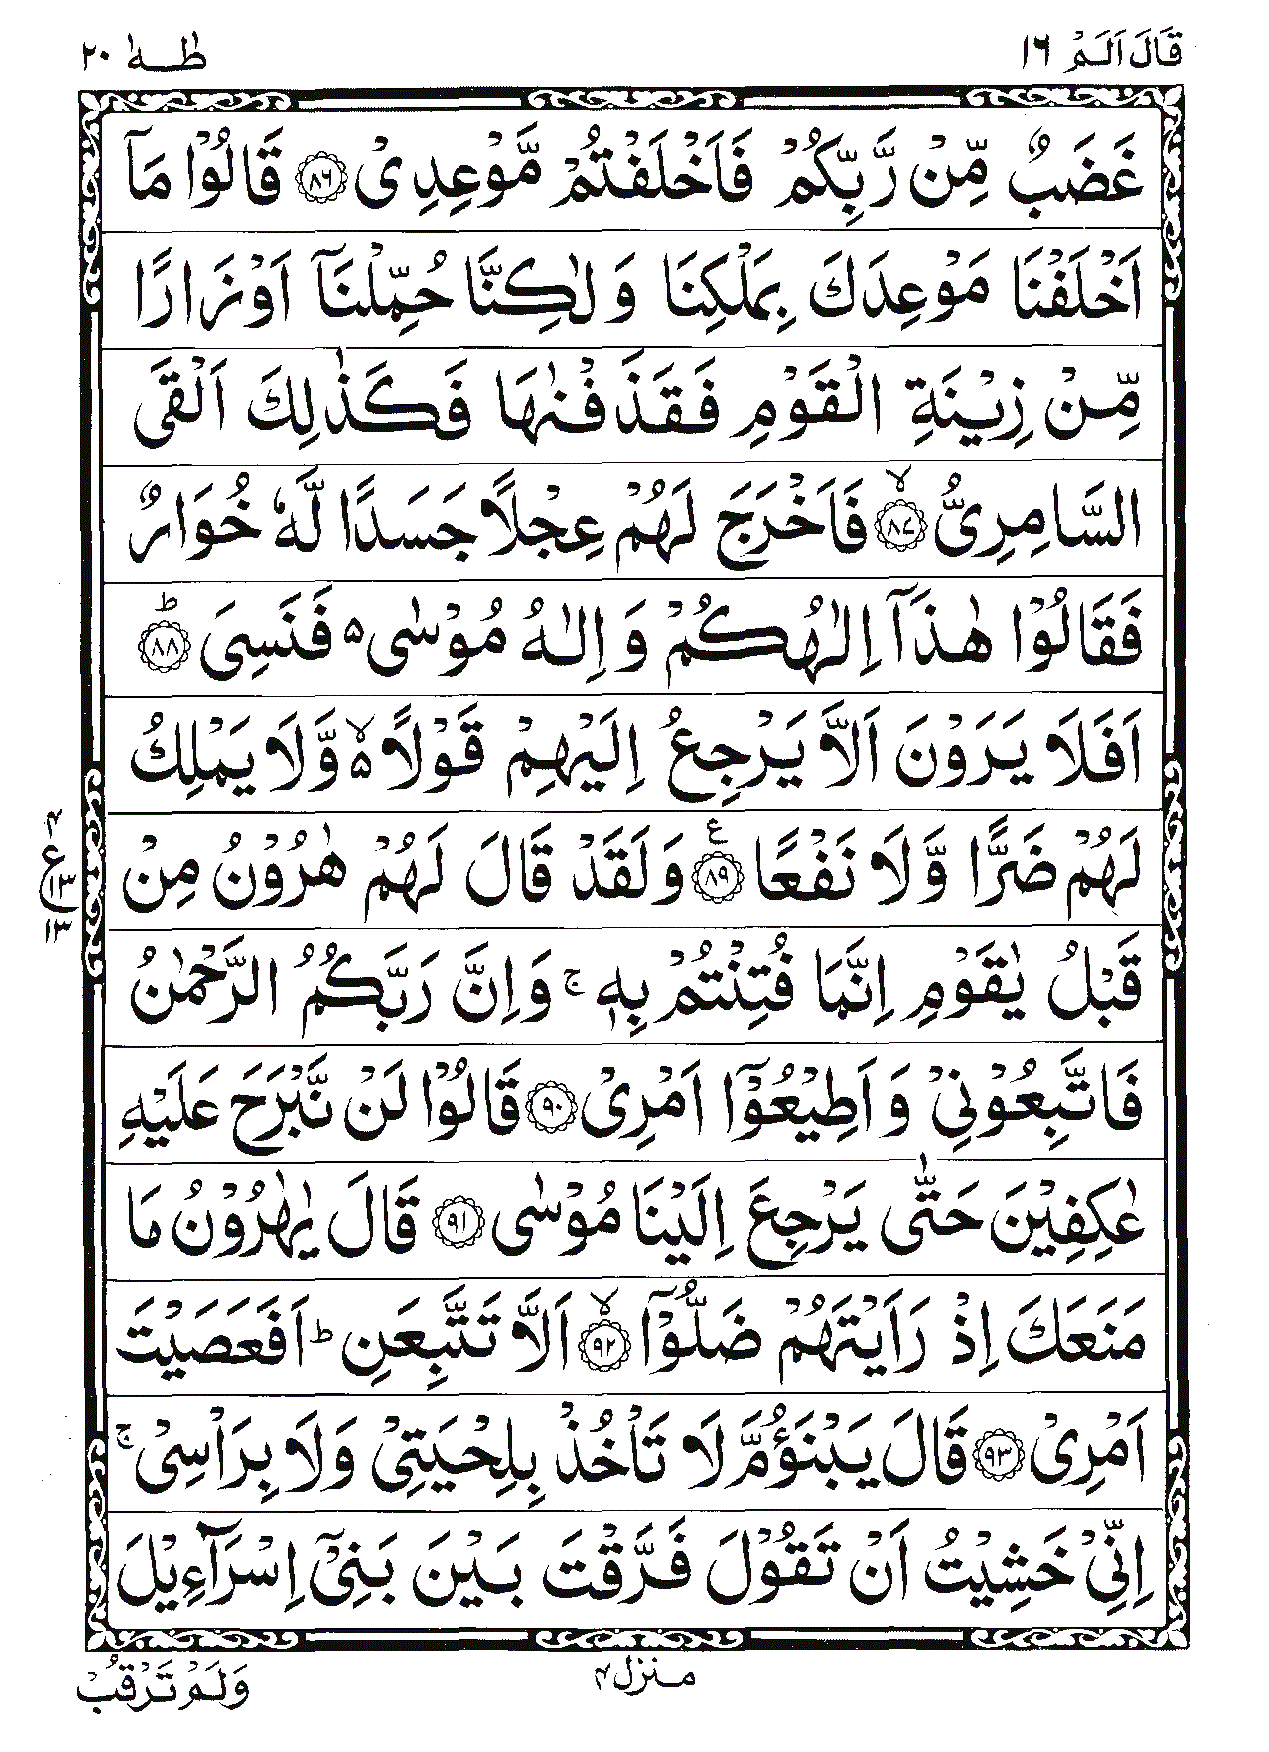 قَالَ اَلَمْ ١٦ طٰهٰ ٢٠
غَضَبٌ مِّنْ رَّبِّكُمْ فَاَخْلَفْتُمْ مَّوْعِدِىْ ﴿٨٦﴾ قَالُوْا مَاۤ
اَخْلَفْنَا مَوْعِدَكَ بِمَلْكِنَا وَ لٰكِنَّا حُمِّلْنَاۤ اَوْزَارًا
مِّنْ زِيْنَةِ الْقَوْمِ فَقَذَفْنٰهَا فَكَذٰلِكَ اَلْقَى
السَّامِرِىُّ ۙ﴿٨٧﴾ فَاَخْرَجَ لَهُمْ عِجْلًا جَسَدًا لَّهٗ خُوَارٌ
فَقَالُوْا هٰذَاۤ اِلٰهُكُمْ وَ اِلٰهُ مُوْسٰى ۥ فَنَسِىَ ؕ﴿٨٨﴾
اَفَلَا يَرَوْنَ اَلَّا يَرْجِعُ اِلَيْهِمْ قَوْلًا ۥۙ وَّلَا يَمْلِكُ
لَهُمْ ضَرًّا وَّ لَا نَفْعًا ﴿٨٩﴾ ع وَلَقَدْ قَالَ لَهُمْ هٰرُوْنُ مِنْ
٤ ع ١٣ ١٣
قَبْلُ يٰقَوْمِ اِنَّمَا فُتِنْتُمْ بِهٖ ۚ وَاِنَّ رَبَّكُمُ الرَّحْمٰنُ
فَاتَّبِعُوْنِىْ وَ اَطِيْعُوْۤا اَمْرِىْ ﴿٩٠﴾ قَالُوْا لَنْ نَّبْرَحَ عَلَيْهِ
عٰكِفِيْنَ حَتّٰى يَرْجِعَ اِلَيْنَا مُوْسٰى ﴿٩١﴾ قَالَ يٰهٰرُوْنُ مَا
مَنَعَكَ اِذْ رَاَيْتَهُمْ ضَلُّوْۤا ۙ﴿٩٢﴾ اَلَّا تَتَّبِعَنِ ؕ اَفَعَصَيْتَ
اَمْرِىْ ﴿٩٣﴾ قَالَ يَبْنَؤُمَّ لَا تَاْخُذْ بِلِحْيَتِىْ وَلَا بِرَاْسِىْ ۚ
اِنِّىْ خَشِيْتُ اَنْ تَقُوْلَ فَرَّقْتَ بَيْنَ بَنِىْۤ اِسْرَآءِيْلَ
منزل ٤
وَلَمْ تَرْقُبْ